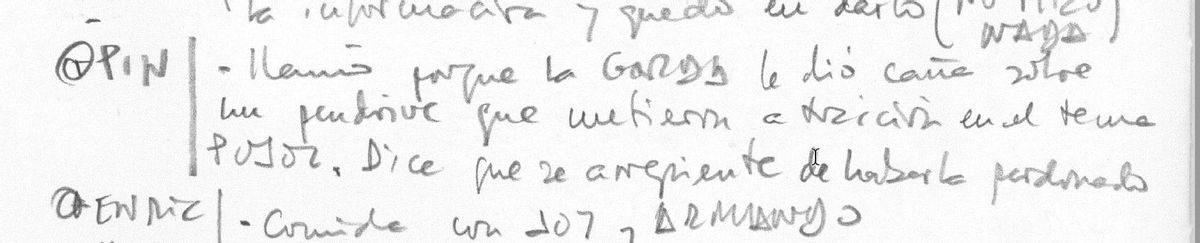 la información y quedó en darlo (NO HIZO
NADA)
PIN | - Llamó porque la GORDA le dio caña sobre
un pendrive que metieron a traición en el tema
PUJOL. Dice que se arrepiente de haberla perdonado
ENRIC | - Comida con JOT y ARMANDO